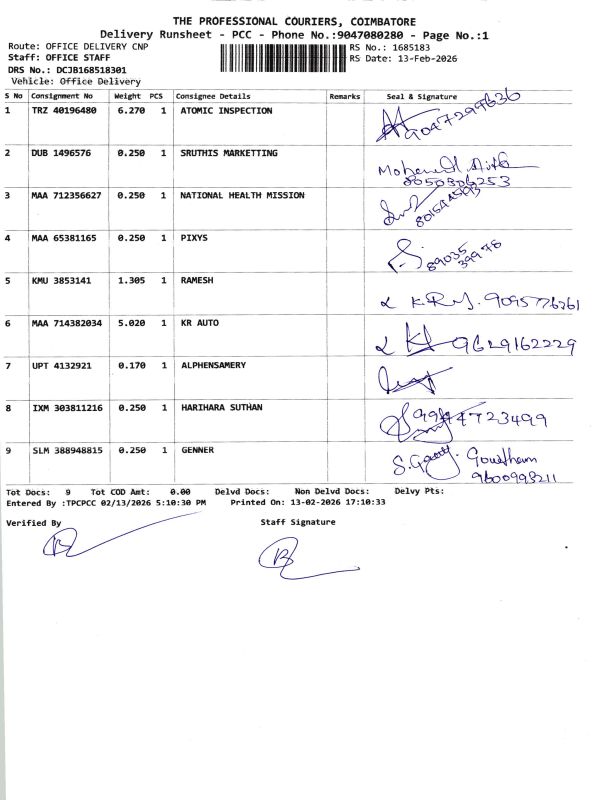 THE PROFESSIONAL COURIERS, COIMBATORE
Delivery Runsheet - PCC - Phone No.:9047080280 - Page No.:1
Route: OFFICE DELIVERY CNP RS No.: 1685183
Staff: OFFICE STAFF RS Date: 13-Feb-2026
DRS No.: DCJB168518301
Vehicle: Office Delivery
S No Consignment No Weight PCS Consignee Details Remarks Seal & Signature
1 TRZ 40196480 6.270 1 ATOMIC INSPECTION 9047297636
2 DUB 1496576 0.250 1 SRUTHIS MARKETTING
8050306253
3 MAA 712356627 0.250 1 NATIONAL HEALTH MISSION
4 MAA 65381165 0.250 1 PIXYS 89035
39978
5 KMU 3853141 1.305 1 RAMESH 9095776261
6 MAA 714382034 5.020 1 KR AUTO 9629162229
7 UPT 4132921 0.170 1 ALPHENSAMERY
8 IXM 303811216 0.250 1 HARIHARA SUTHAN 9944723499
9 SLM 388948815 0.250 1 GENNER Gowtham
9600993211
Tot Docs: 9 Tot COD Amt: 0.00 Delvd Docs: Non Delvd Docs: Delvy Pts:
Entered By :TPCPCC 02/13/2026 5:10:30 PM Printed On: 13-02-2026 17:10:33
Verified By Staff Signature